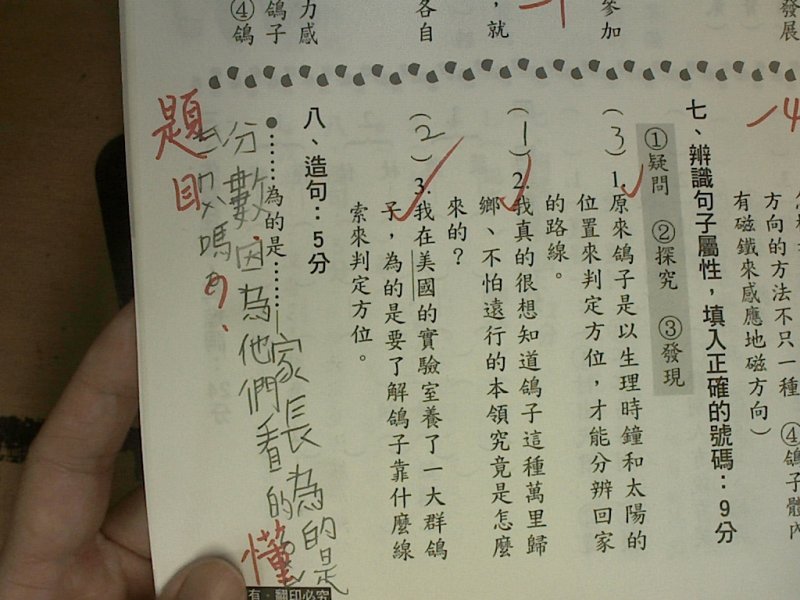 發展
參加
，就
各自
力感
鴿子
④鴿
4
方向的方法不只一種 ④鴿子體內
有磁鐵來感應地磁方向）
七、辨識句子屬性，填入正確的號碼：9分
①疑問 ②探究 ③發現
（3）1.原來鴿子是以生理時鐘和太陽的
位置來判定方位，才能分辨回家
的路線。
（1）2.我真的很想知道鴿子這種萬里歸
鄉、不怕遠行的本領究竟是怎麼
來的？
（2）3.我在美國的實驗室養了一大群鴿
子，為的是要了解鴿子靠什麼線
索來判定方位。
八、造句：5分
●……為的是……
家長為的是
分數因為他們看的
懂
嗎？
題目
有．翻印必究